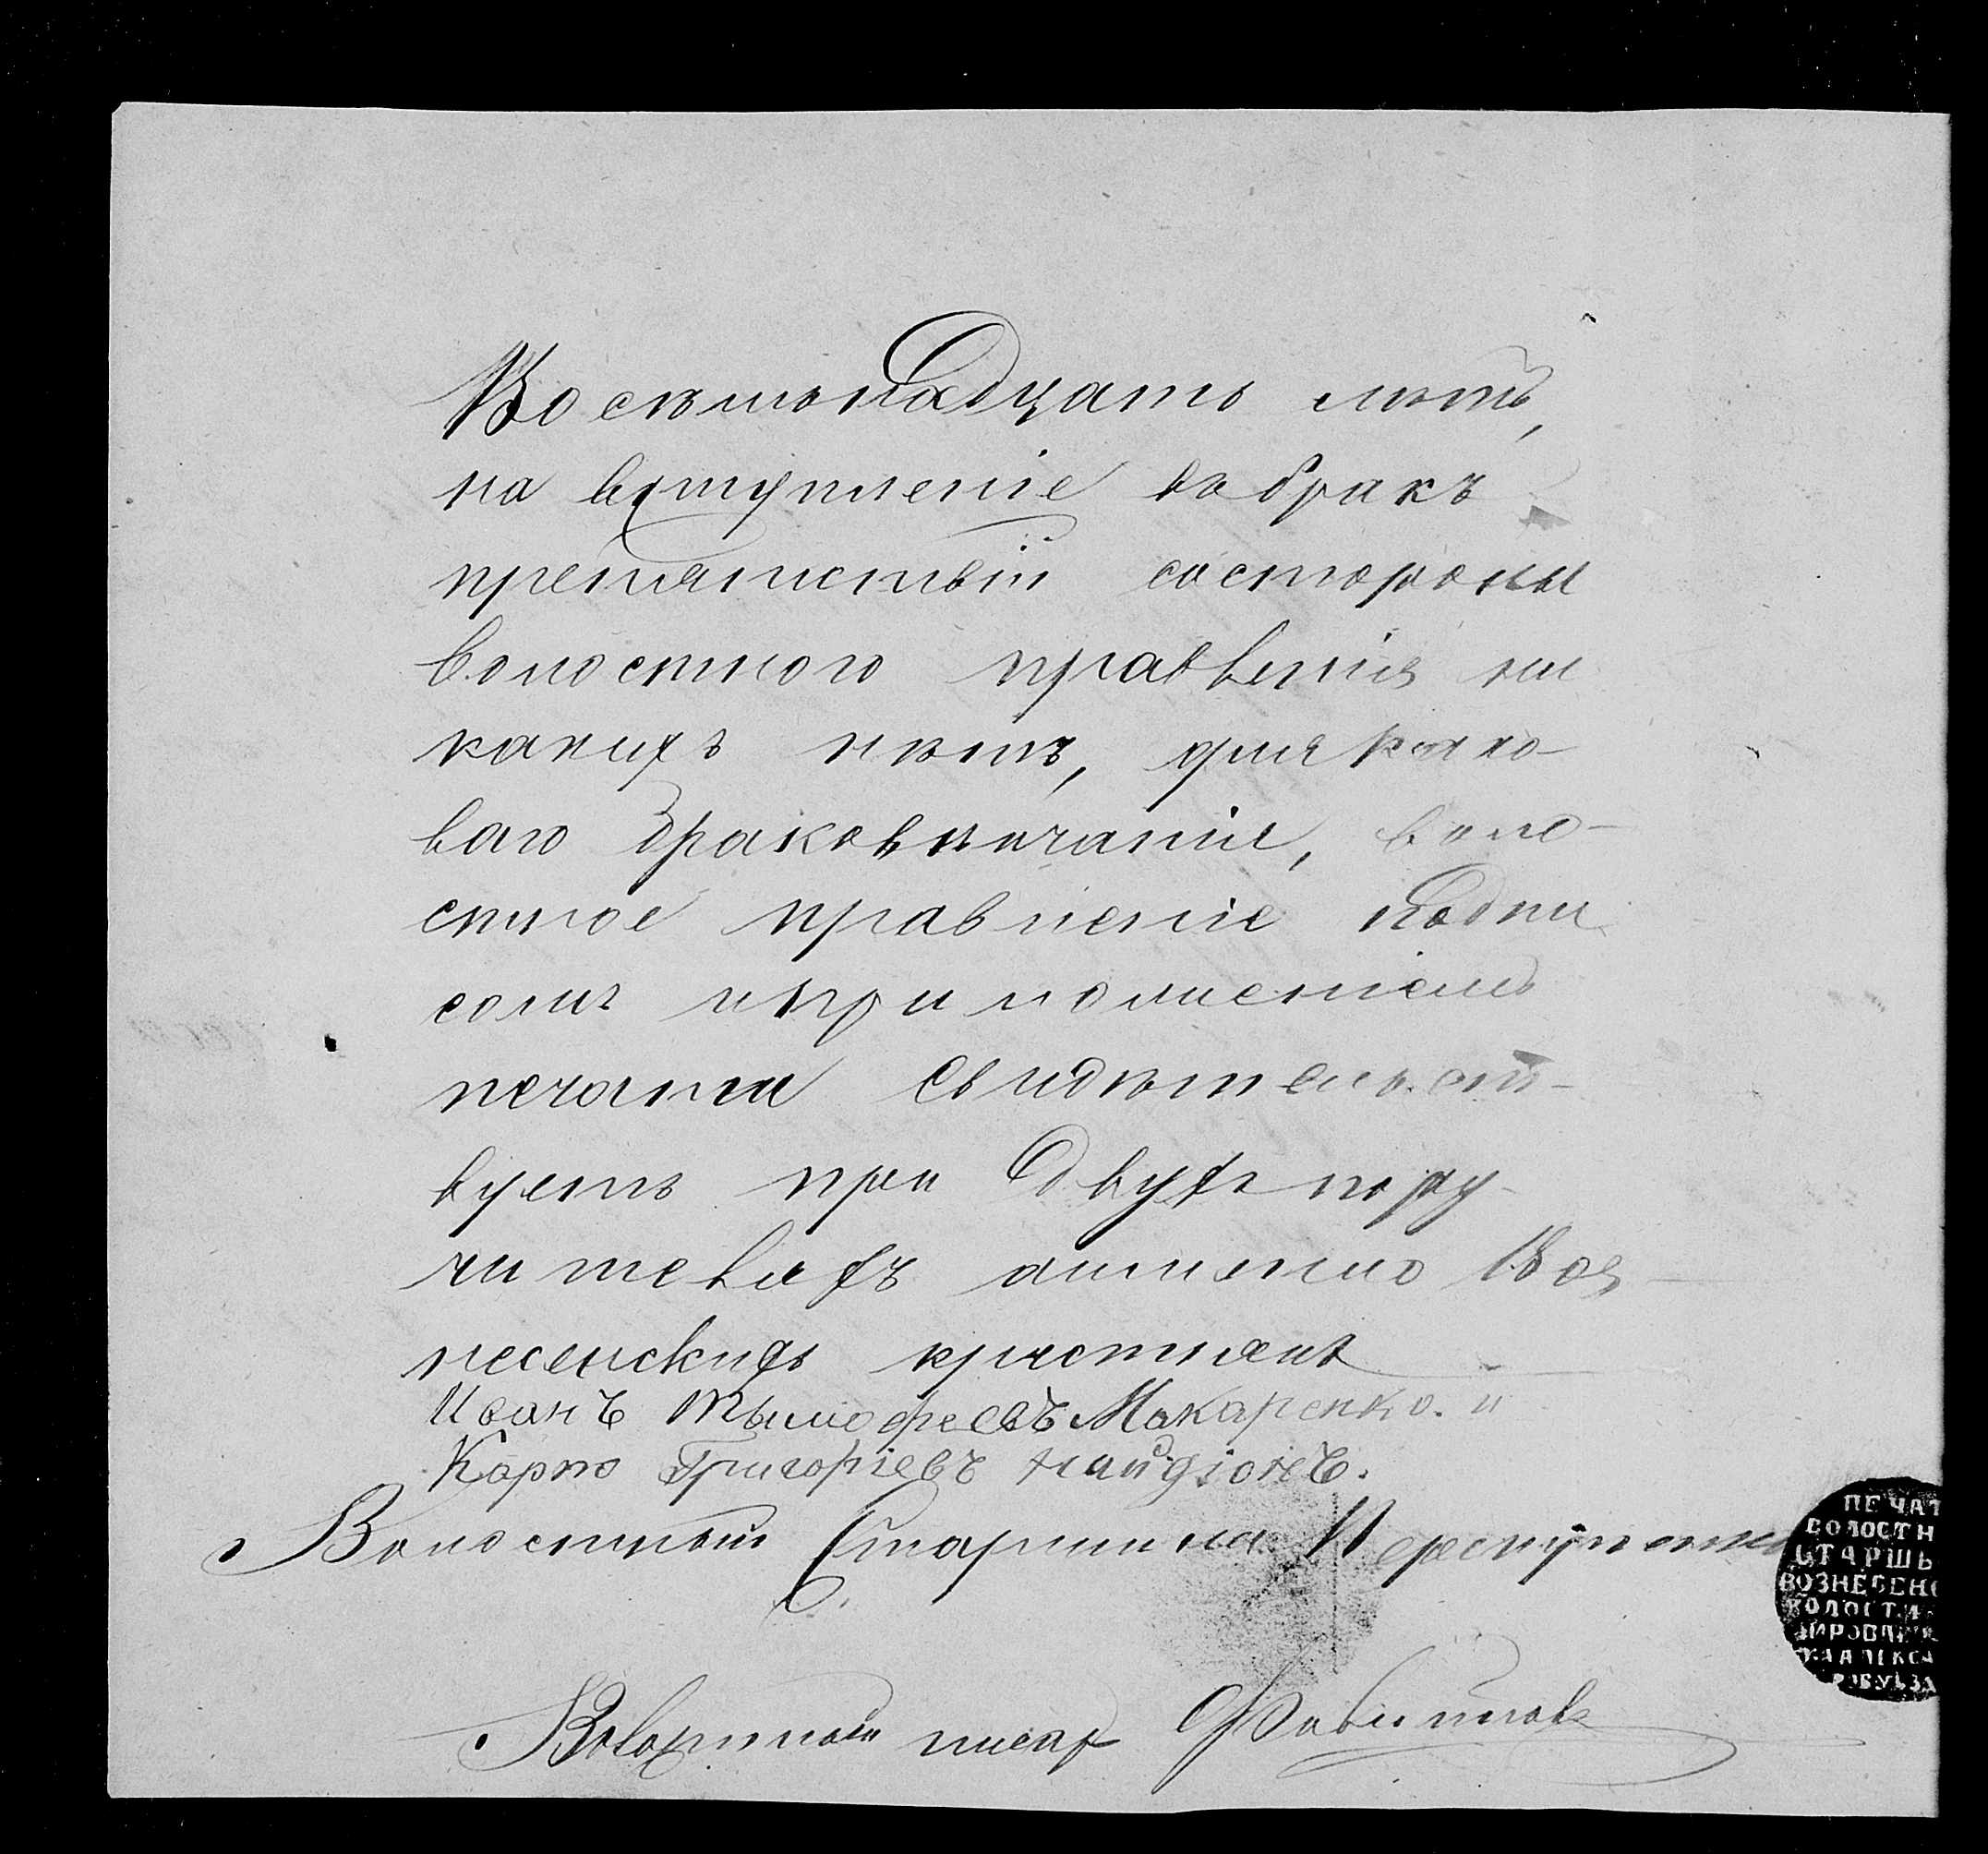 Восемьнадцать лѣтъ,
на вступленіе въ бракъ
препятствій состороны
волостного правленія ни
какихъ нѣтъ, для како-
ваго браковѣнчанія, воло-
стное правленіе подпи
сомъ и приложеніемъ
печати свидѣтельст-
вуетъ при двухъ пору-
чителяхъ аимѣнно Воз-
несенскихъ крестьянъ
Иванъ Тымофеевъ Макаренко. и
Карпо Григоріевъ
Волостный Старшина Переступенко
Волостный писарь
ПЕЧАТ
ВОЛОСТН
СТАРШЬ
ВОЗНЕСЕНС
ВОЛОСТИ
МИРОВАГО
КА АЛЕКСА
РОВ УѢЗД